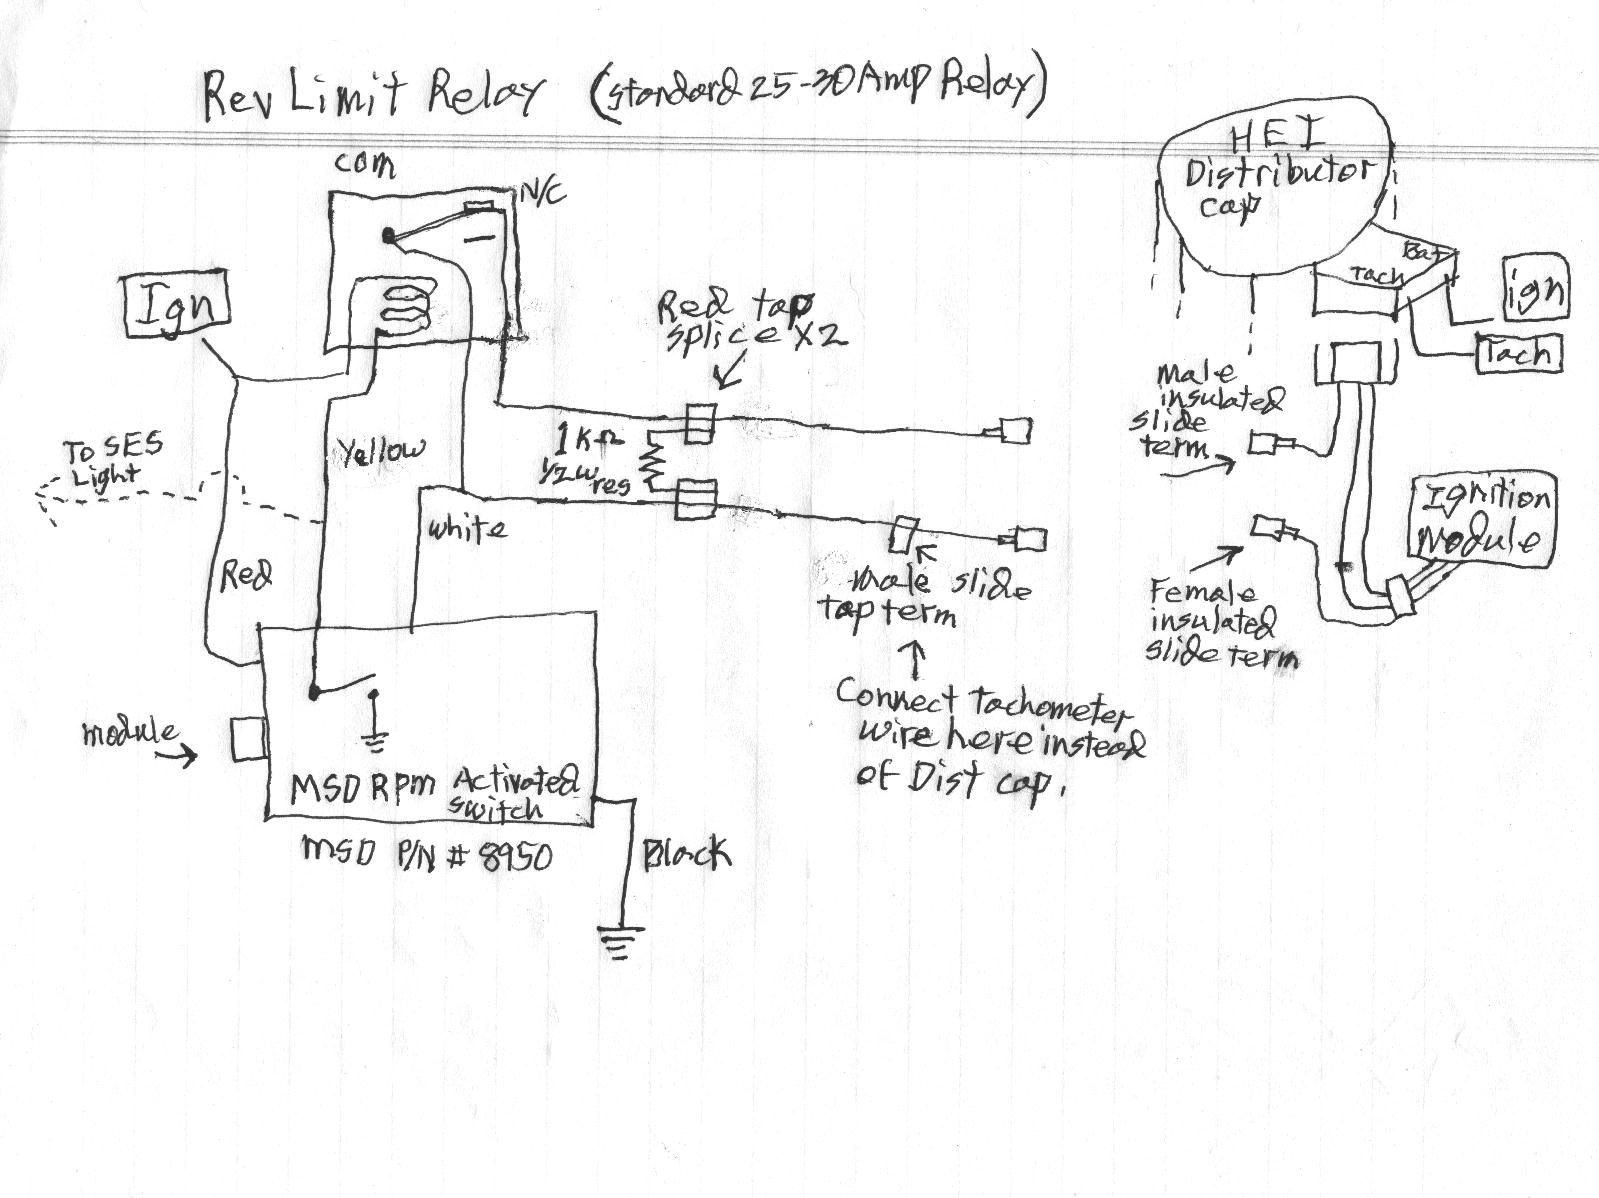 Rev Limit Relay (standard 25-30 Amp Relay)
com
N/C
Ign
Red tap
splice x2
1KΩ
1/2w
res
Yellow
To SES
Light
White
Red
male slide
tap term
Connect Tachometer
wire here instead
of Dist cap.
module
MSD RPM Activated
switch
MSD P/N # 8950
Black
HEI
Distributor
cap
Bat
Tach
ign
Tach
Male
insulated
slide
term
Ignition
Module
Female
insulated
slide term